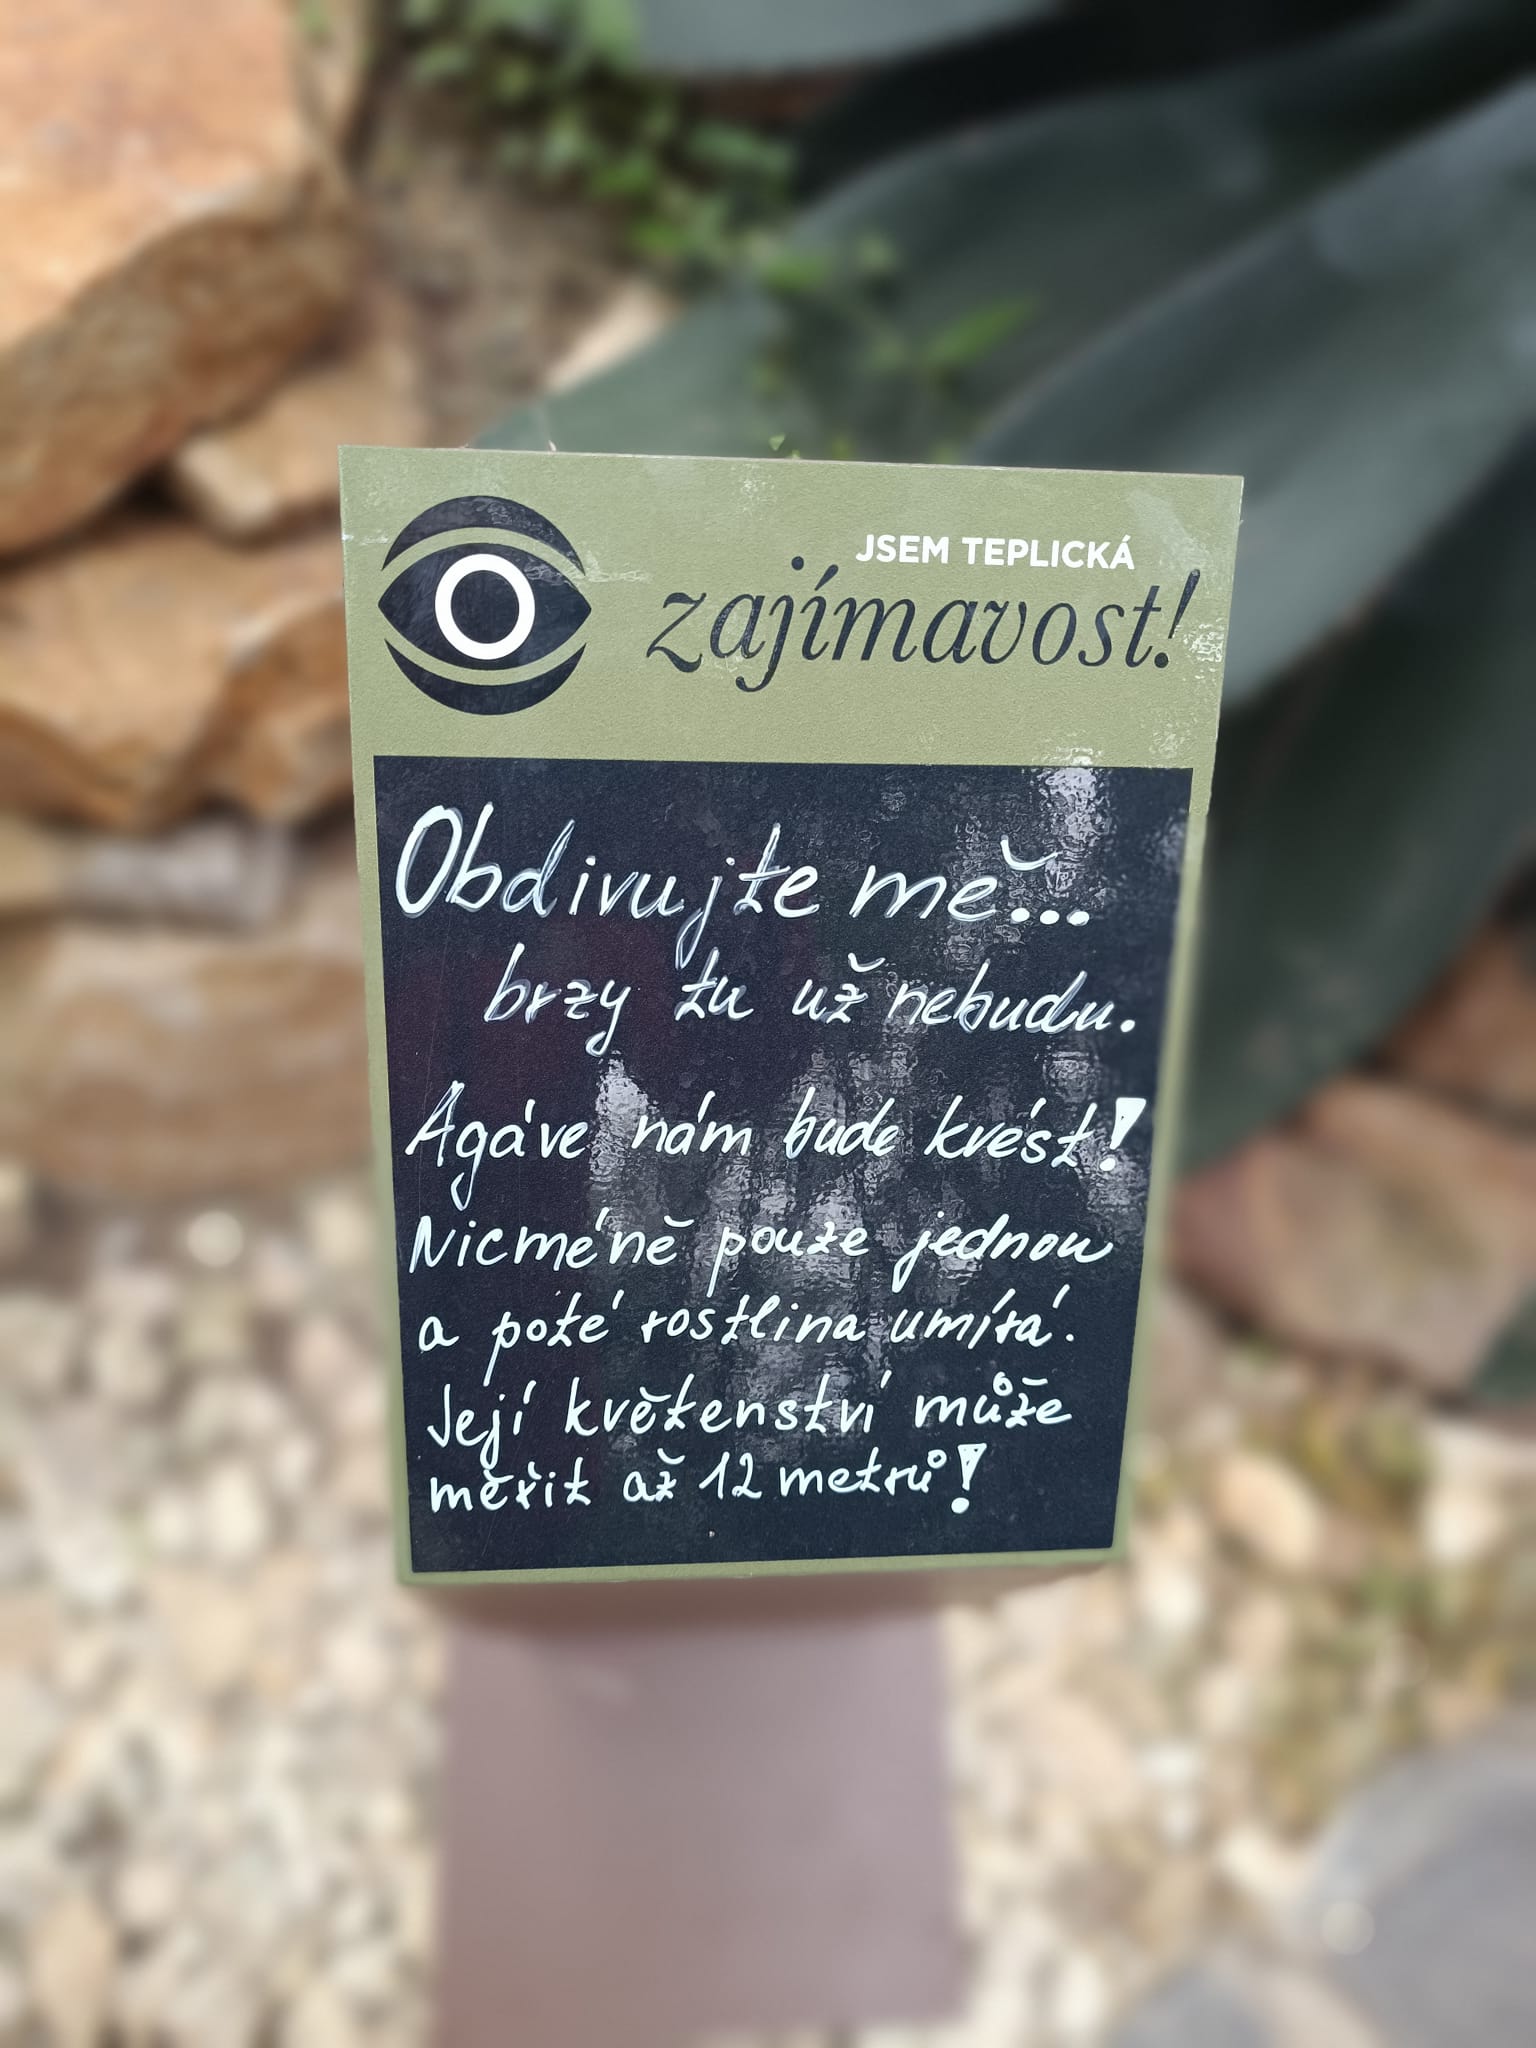 JSEM TEPLICKÁ
zajímavost!
Obdivujte mě...
brzy tu už nebudu.
Agáve nám bude kvést!
Nicméně pouze jednou
a poté rostlina umírá.
Její květenství může
měřit až 12 metrů!